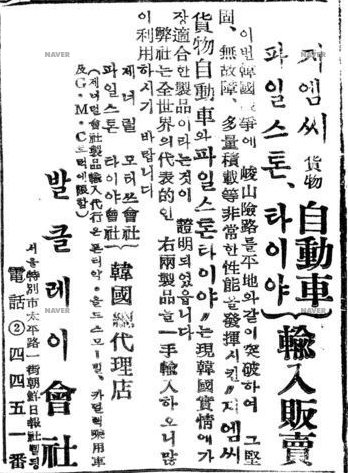 지엠씨 貨物自動車
파일스톤、타이야
輸入販賣
이번韓國 爭에 峻山險路를平地와같이突破하여 그堅
固、無故障、多量積載等非常한性能을發揮시킨〃지엠씨
貨物自動車와파일스톤타이야〃는現韓國實情에가
장適合한製品이라는것이 證明되었읍니다
弊社는全世界의代表的인 右兩製品을一手輸入하오니많
이利用하시기 바랍니다
제너럴 모터쓰會社
파일스톤 타이야會社
韓國總代理店
(제너럴會社製品輸入代行은폰티악•올드스모—빌、카딜락乘用車
及G•M•C드럭에限함)
발클레이會社
서울特別市太平路一街朝鮮日報社
電話②四四五一番
NAVER
NAVER
NAVER
NAVER
NAVER
NAVER
NAVER
NAVER
NAVER